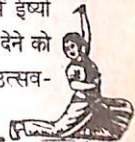 ईर्ष्या
देने को
उत्सव-